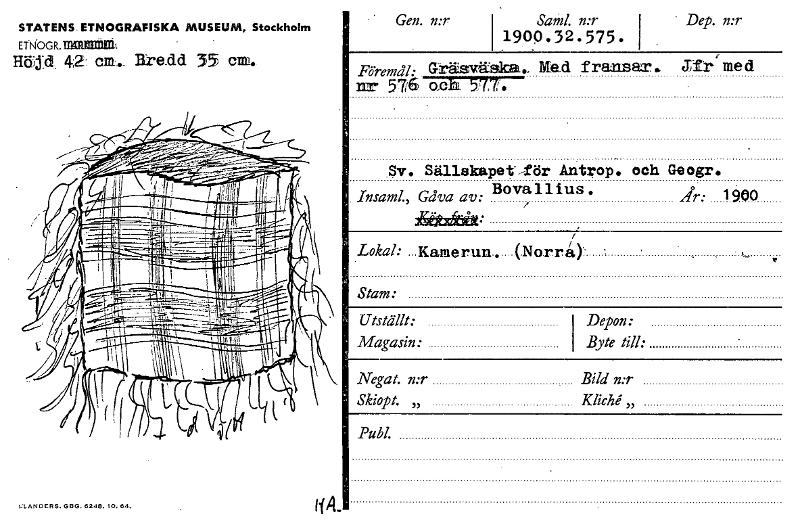 STATENS ETNOGRAFISKA MUSEUM, Stockholm
ETNOGR.
Höjd 42 cm. Bredd 35 cm.
ELANDERS. GBG. 6248. 10. 64.
HA.
Gen. n:r Saml. n:r Dep. n:r
1900.32.575.
Föremål: Gräsväska. Med fransar. Jfr med
nr 576 och 577.
Sv. Sällskapet för Antrop. och Geogr.
Insaml., Gåva av: Bovallius. År: 1900
Lokal: Kamerun. (Norra)
Stam:
Utställt: Depon:
Magasin: Byte till:
Negat. n:r Bild n:r
Skiopt. „ Kliché „
Publ.